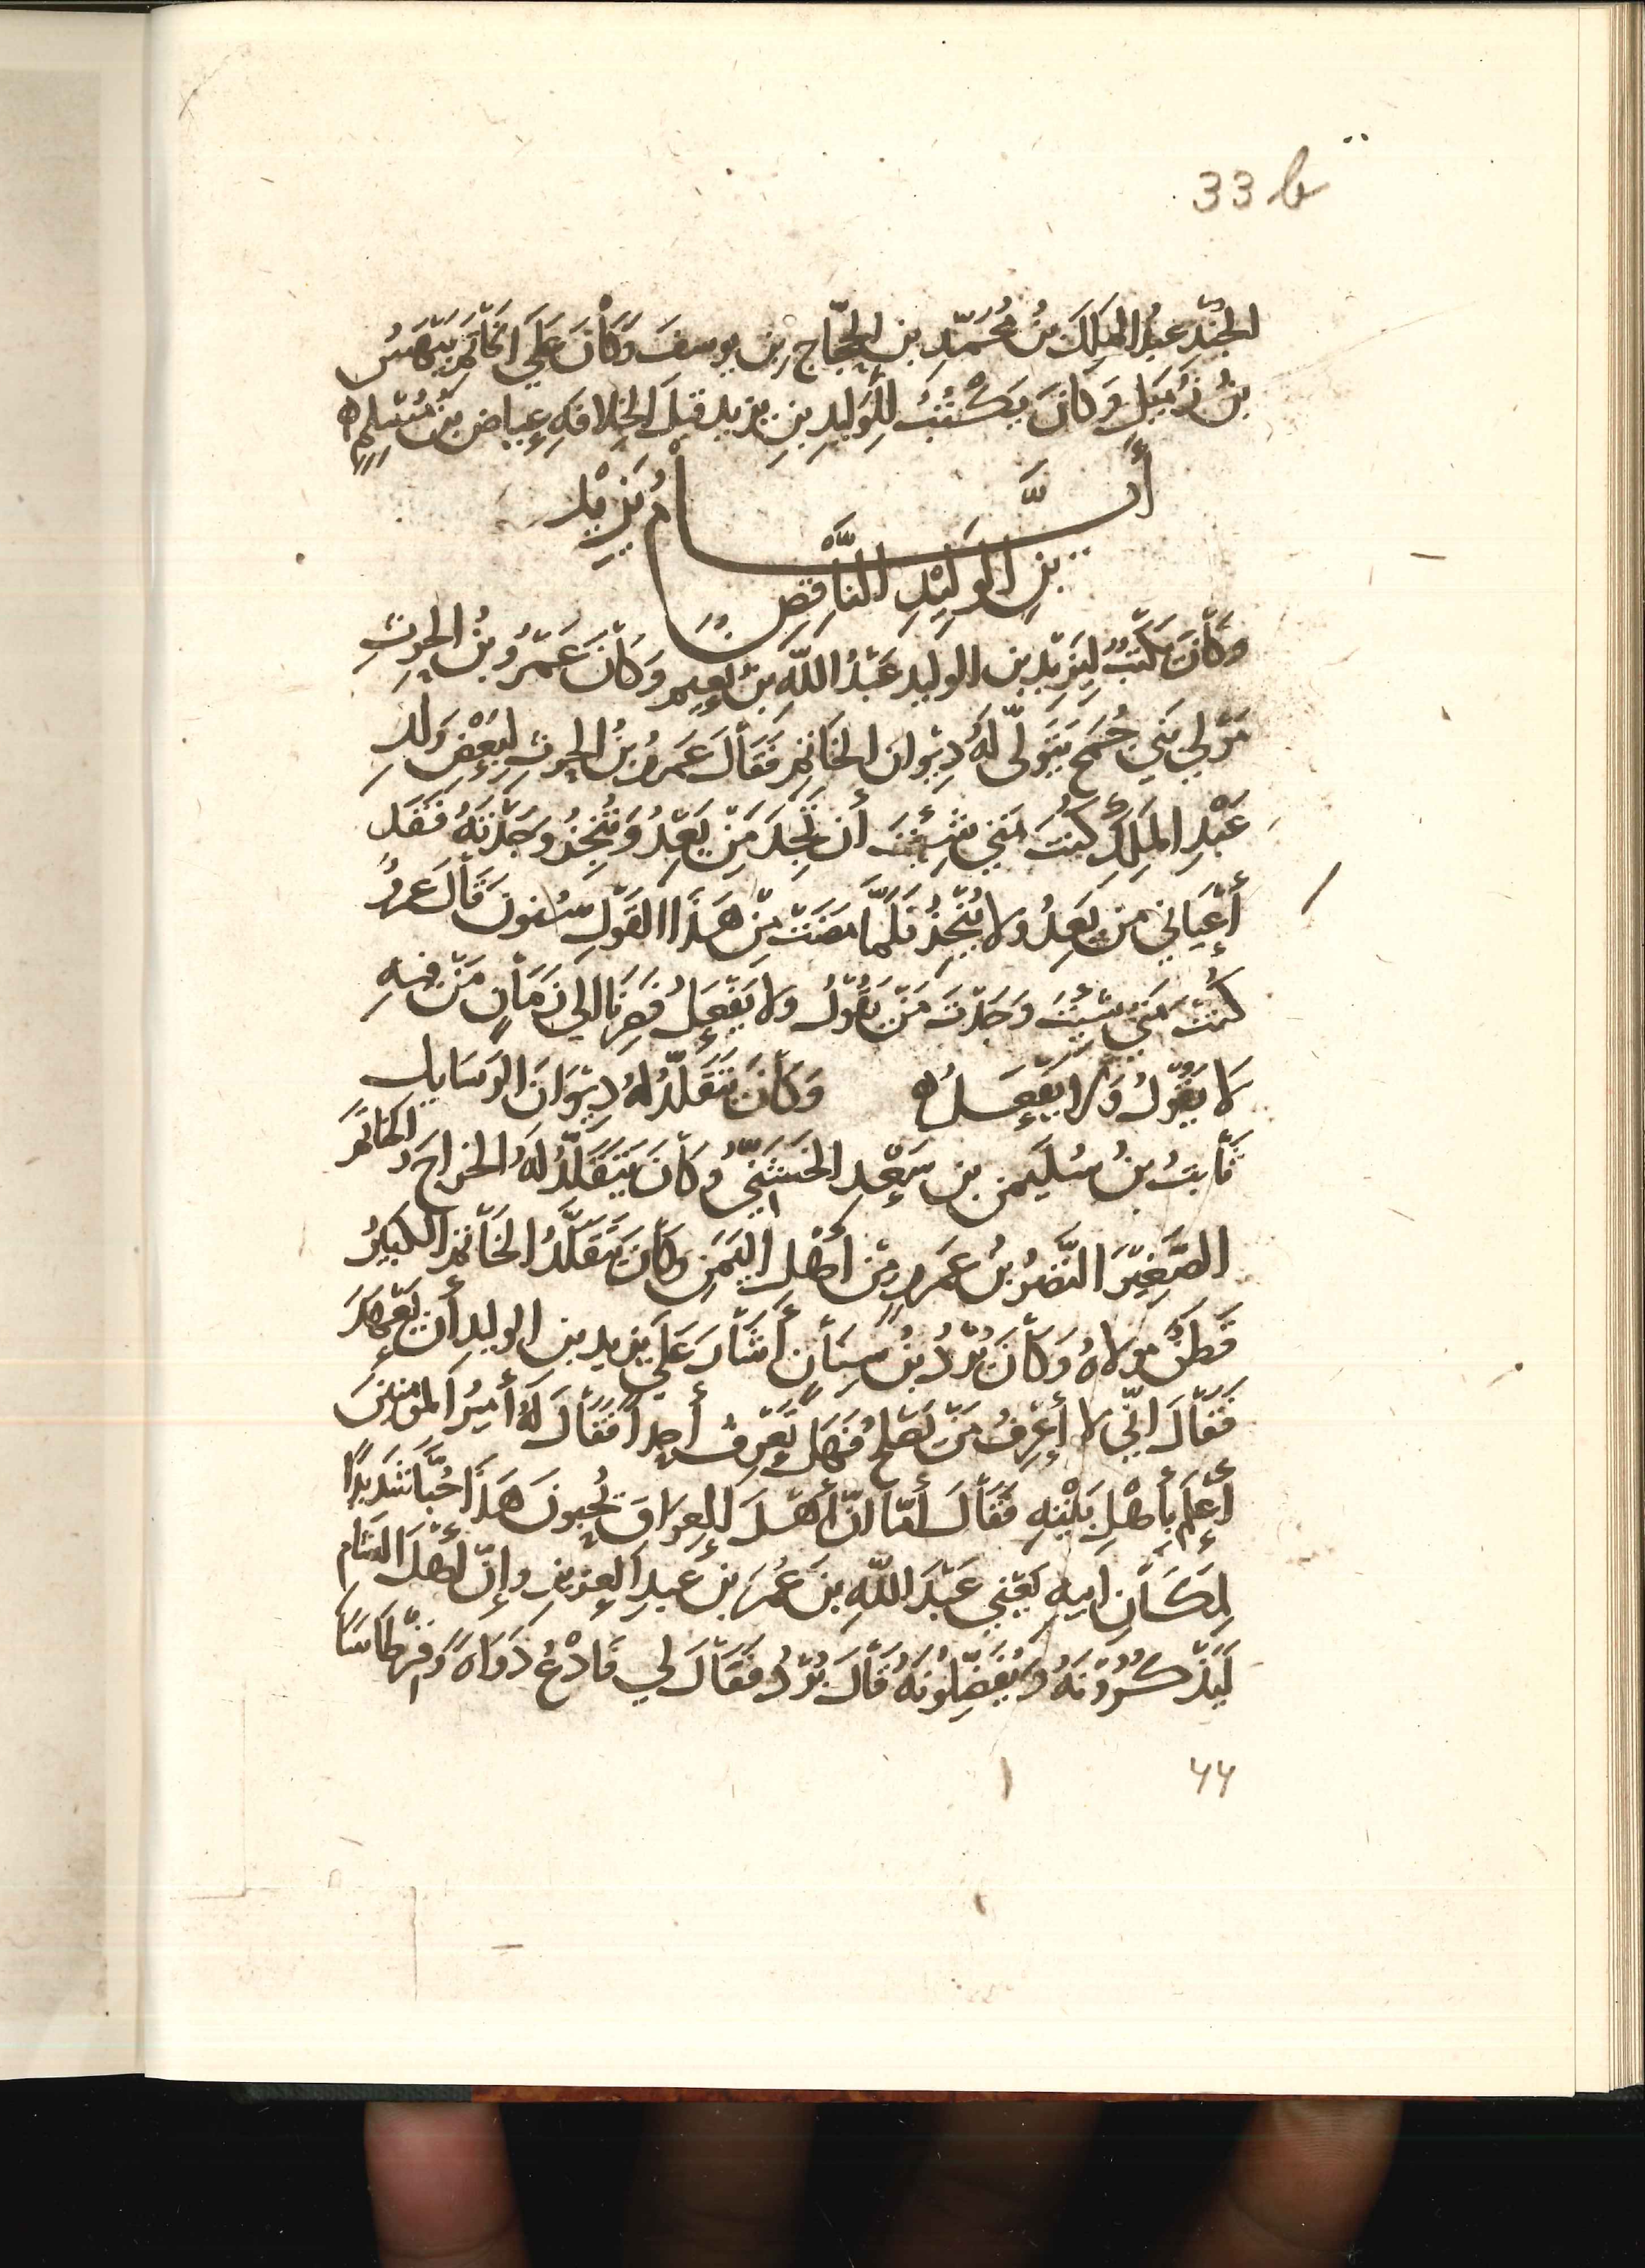 33 b
الجُنْدِ عَبْدُ المَلِكَ بْنُ مُحَمَّدِ بنِ الحَجَّاجِ بن يوسفَ وَكَانَ عَلَي الخَاتَمِ بَيْهَسُ
بنُ زُمَيلٍ وَكَانَ يَكْتُبُ لِلْوَلِيدِ بنِ يزيد قبلَ الخِلافَةِ عِيَاض بنُ مُسْلِمٍ
أَيَّامُ يَزِيْد
بنِ الوَلِيْدِ النَّاقِصِ
وَكَانَ يَكْتُبُ لِيَزِيْدِ بن الوليد عَبْدُ اللّهِ بنُ نعيم وَكَانَ عَمْرُو بنُ الحرثِ
مَوْلي بَني جُمَح يَتَوَلَّى لَهُ دِيْوانَ الخَاتمِ فَقَالَ عَمرُو بنُ الحرثِ لِبَعْضِ وَلدِ
عَبْدِ المَلِكِ كُنتَ مَتي شِئْتَ أن تَجِدَ مَنْ يَعِدُ وَيُنْجِزُ وَجَدْتَهُ فَقَد
أَعْيَاني مَن يَعِدُ ولا يُنْجِزُ فَلَمَّا مَضَتْ مِنْ هَذَا القَوْلِ سُنونَ قَالَ عَمرُو
كُنْتَ مَتَي شِئْتَ وَجَدْتَ مَنْ يَقُوْلُ ولا يَفْعَلُ فَصِرْنَا إلي زَمَانٍ مَنْ فيهِ
لا يَقُوْلُ وَلا يَفْعَلُ وَكَانَ يَتَقَلَّدُ لهُ دِيْوَانَ الرَسَايل
ثَابتُ بنُ سُلَيمنَ بن سَعْدِ الخَشَنِيُّ وكَانَ يَتَقَلَّدُ لَهُ الخراجَ والخاتمَ
الصَّغِيْرَ النَّضرُ بنُ عَمرٍو مِنْ أهْلِ اليَمَنِ وكَانَ يَتَقَلَّدُ الخَاتمَ الكَبيرُ
قَطَنٌ مَولاهُ وَكَانَ بُرْدُ بنُ سِنَانٍ أَشَارَ عَلَي يزيد بن الوليد أن يَعْهَدَ
فَقَالَ انّي لا أعْرِفُ مَنْ يَصْلحُ فَهَل تَعْرِفُ أحداً فَقَالَ لَهُ أَمِيرُ المؤمنينَ
أَعلَم بأَهْلِ بَيْتِهِ فَقَالَ أمّا انّ أهْلَ العِراقَ يُحِبونَ هَذَا حُبًّا شَدِيدًا
لِمَكَانِ ابيهِ يَعْنِي عَبْدَ اللّهِ بنَ عُمَرَ بنَ عَبدِ العَزيزِ وإنّ أهْلَ الشام
لَيَذْكُرُوْنَهُ وَيُفَضِّلُونَهُ قَالَ بُرْدُ فَقَالَ لي فَادْعُ دَوَاةً وَقِرْطَاسًا
44